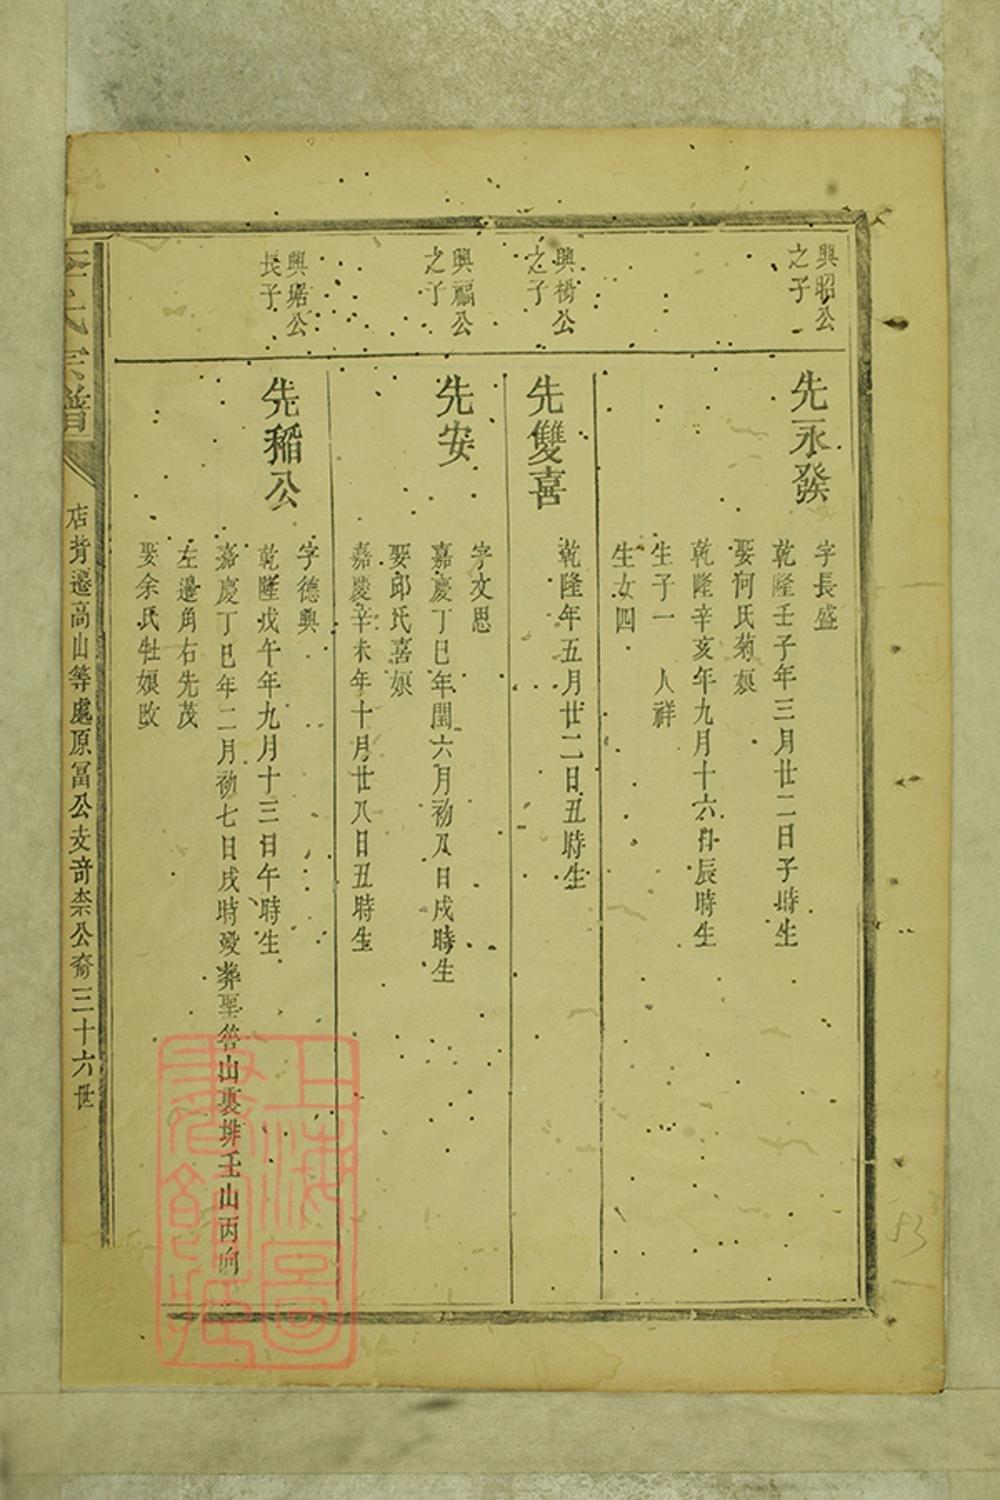 興昭公
之子
先永發
字長盛
乾隆壬子年三月廿二日子時生
娶何氏菊娘
乾隆辛亥年九月十六日辰時生
生子一 人祥
生女四
興楊公
之子
先雙喜
乾隆年五月廿二日丑時生
興福公
之子
先安
字文思
嘉慶丁巳年閏六月初八日戌時生
娶邱氏喜娘
嘉慶辛未年十月廿八日丑時生
興琚公
長子
先稻公
字德興
乾隆戊午年九月十三日午時生
嘉慶丁巳年二月初七日戌時歿葬聖筶山裏排壬山丙向
左邊角右先茂
娶余氏牡娘改
李氏宗譜
店背遷高山等處原冨公支奇崇公裔三十六世
上海圖書館藏
53